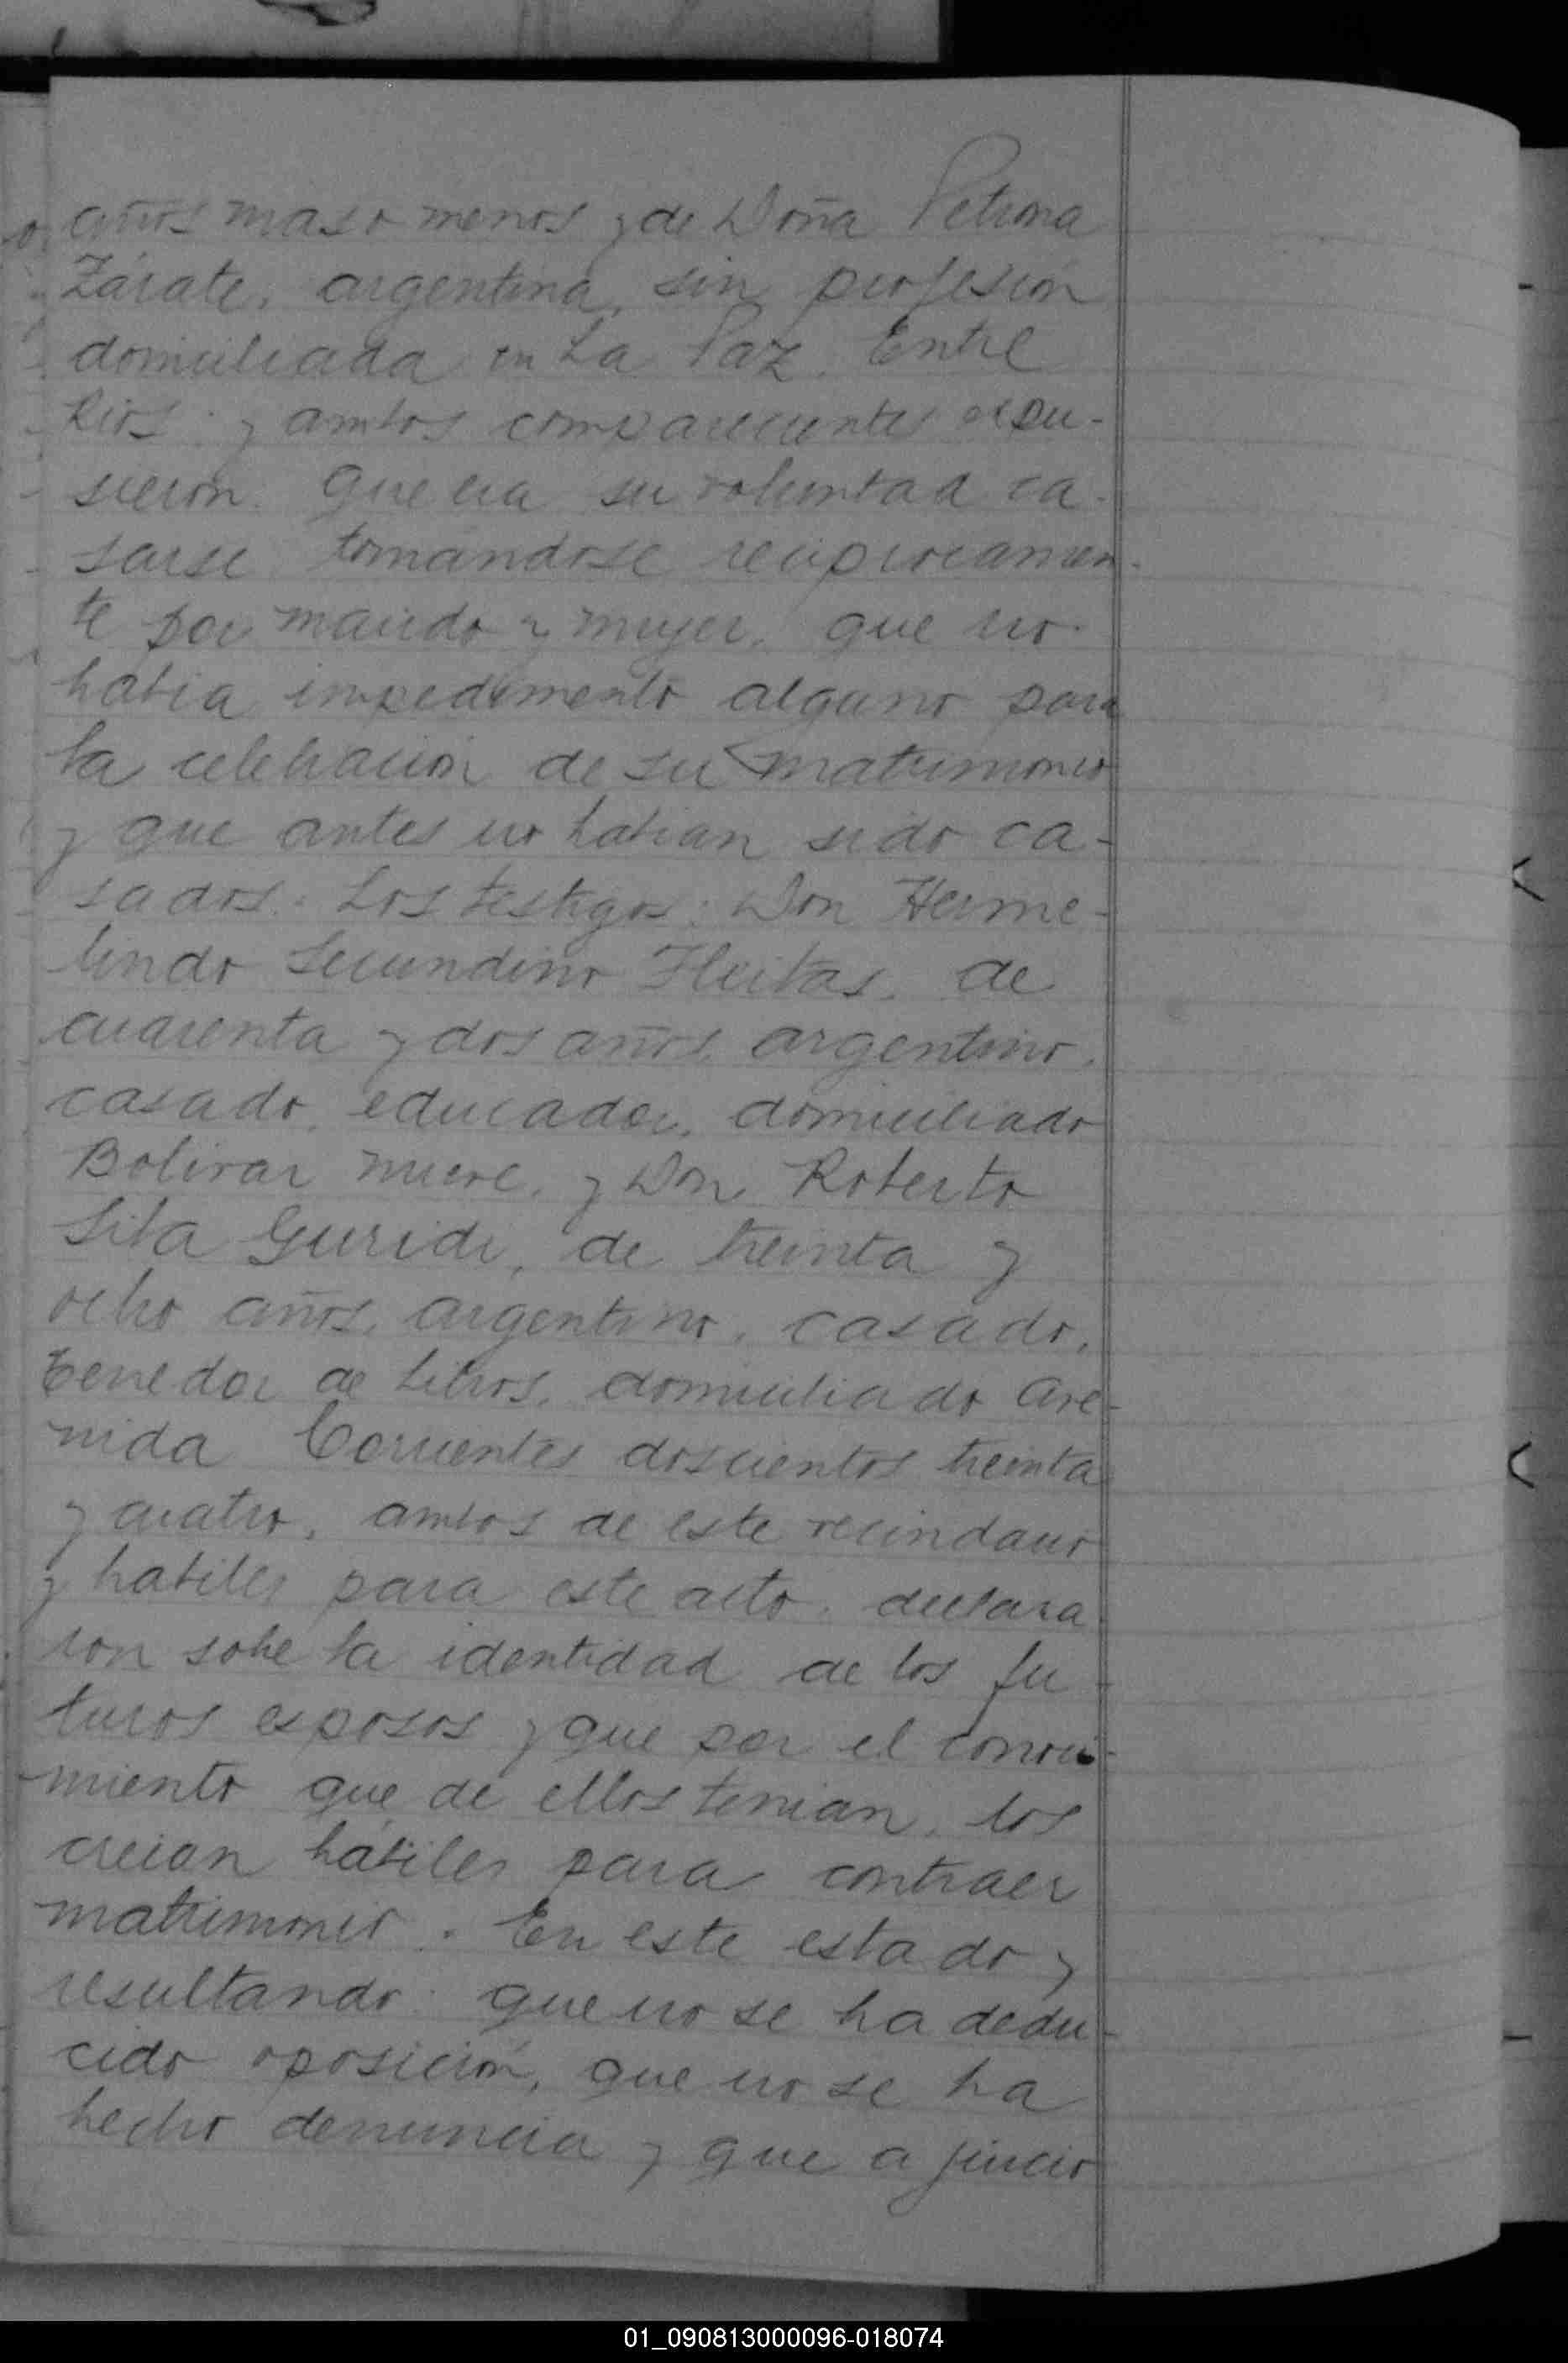 años mas o menos y de Doña Petrona
Zárate, argentina, sin profesión
domiciliada en La Paz, Entre
Rios: y ambos comparecientes expu-
sieron: Que era su voluntad ca-
sarse, tomándose reciprocamen-
te por marido y mujer, que no
habia impedimento alguno para
la celebración de su matrimonio
y que antes no habian sido ca-
sados. Los testigos: Don Herme-
lindo Secundino Fleitas, de
cuarenta y dos años, argentino,
casado, educador, domiciliado
Bolivar nueve, y Don Roberto
Guridi, de treinta y
ocho años, argentino, casado,
tenedor de libros, domiciliado Ave-
nida Corrientes doscientos treinta
y cuatro, ambos de este vecindario
y habiles para este acto, declara-
ron sobre la identidad de los fu-
turos esposos y que por el conoci-
miento que de ellos tenian, los
creian hábiles para contraer
matrimonio. En este estado y
resultando: que no se ha dedu-
cido oposición, que no se ha
hecho denuncia y que a juicio
01_090813000096-018074